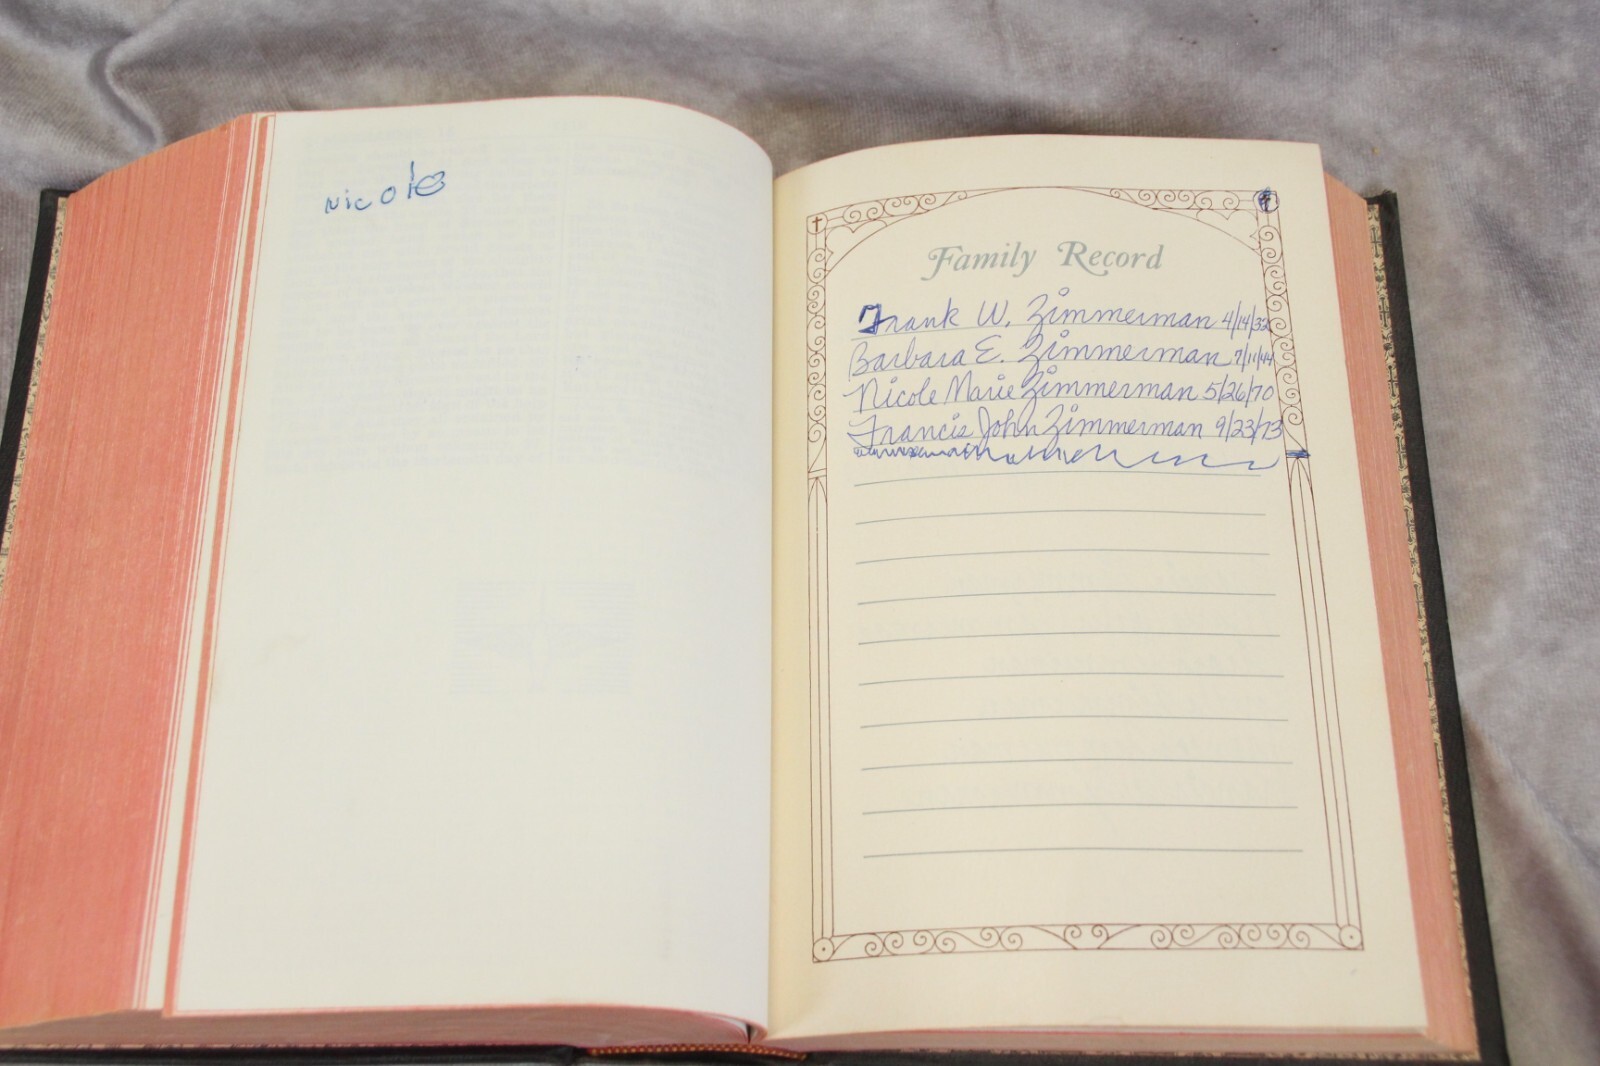 Nicole
Family Record
Frank W. Zimmerman 4/14/32
Barbara E. Zimmerman 7/11/44
Nicole Marie Zimmerman 5/26/70
Francis John Zimmerman 9/23/73